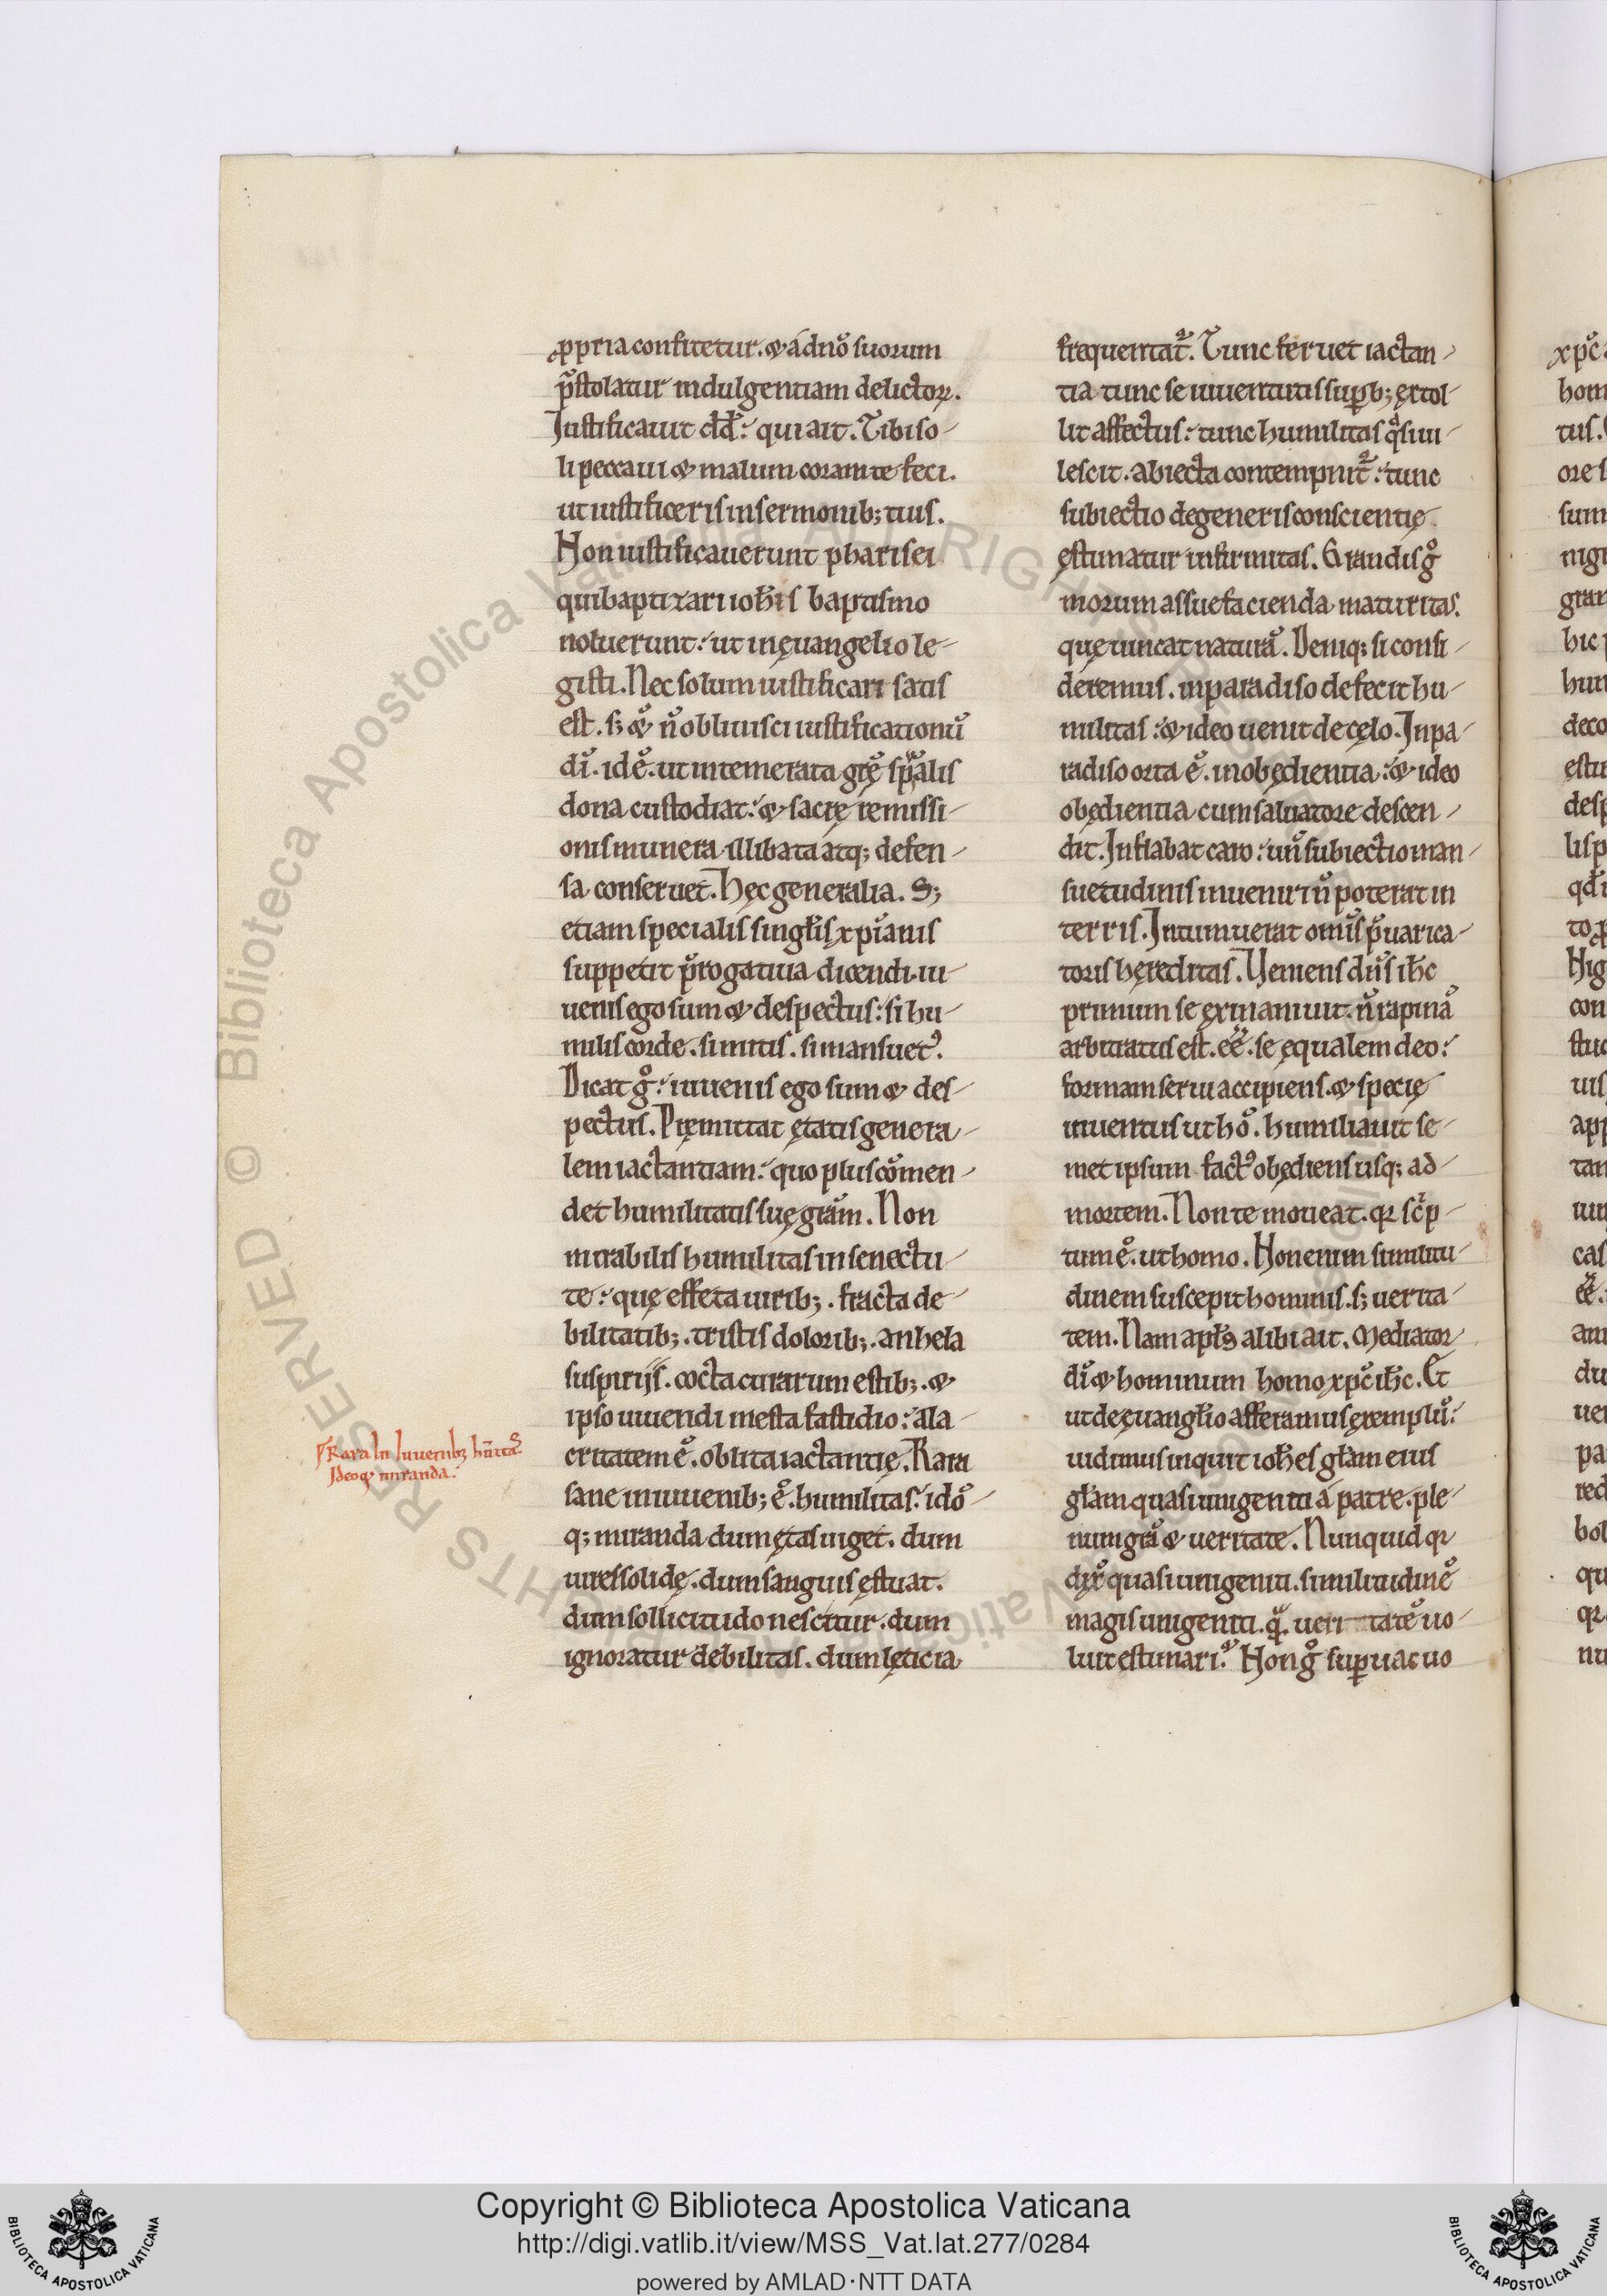 ꝓpria confitetur. & a dño suorum
p̄stolatur indulgentiam delictoꝝ.
Justificauit dd̄. qui ait. Tibi so-
li peccaui & malum coram te feci.
ut iustificeris in sermonib; tuis.
Non iustificauerunt pharisei
qui baptizari ioħis baptismo
noluerunt. ut in ęuangelio le-
gisti. Nec solum iustificari satis
est. s; & ñ obliuisci iustificationū
dī. id ē. ut intemerata grę spālis
dona custodiat. & sacrę remissi-
onis munera illibata atq; defen-
sa conseruet. Hęc generalia. S;
etiam specialis singłis xp̄ianis
suppetit p̄rogatiua dicendi. iu-
uenis ego sum & despectus. si hu-
milis corde. si mitis. si mansuetꝰ.
Dicat gͦ. iuuenis ego sum & des-
pectus. Pręmittat ętatis genera-
lem iactantiam. quo plus cōmen-
det humilitatis suę grām. Non
mirabilis humilitas in senectu-
te. quę effeta uirib;. fracta de-
bilitatib;. tristis dolorib;. anhela
suspirijs. cocta curarum estib;. &
ipso uiuendi mesta fastidio. ala-
critatem ē. oblita iactantię. Rara
sane in iuuenib; ē. humilitas. ideo
q; miranda dum ętas uiget. dum
uires solidę. dum sanguis ęstuat.
dum sollicitudo nescitur. dum
ignoratur debilitas. dum lęticia
Rara in iuuenib; hūitas
Ideoq; miranda.
frequentat᷑. Tunc feruet iactan-
tia tunc se iuuentutis suꝑb; ęxtol-
lit affectus. tunc humilitas qͣsi ui-
lescit. abiecta contempnit᷑. tunc
subiectio degeneris conscientię
ęstimatur infirmitas. Grandis gͦ
morum assuefacienda maturitas.
quę uincat naturā. Deniq; si consi-
deremus. in paradiso defecit hu-
militas. & ideo uenit de cęlo. In pa-
radiso orta ē. inobędientia. & ideo
obędientia cum saluatore descen-
dit. Inflabat caro. uñ subiectio man-
suetudinis inueniri ñ poterat in
terris. Intumuerat omīs p̄uarica-
toris hęreditas. Ueniens dūs iħc
primum se ęxinaniuit. ñ rapinā
arbitratus est. eē. se ęqualem deo.
formam serui accipiens. & specię
inuentus ut hō. humiliauit se-
met ipsum factꝰ obędiens usq; ad
mortem. Non te moueat. qꝛ sc̄p-
tum ē. ut homo. Non enim similitu-
dinem suscepit hominis. s; uerita-
tem. Nam apłs alibi ait. Mediator
dī & hominum homo xp̄c iħc. Et
ut de ęuangłio afferamus ęxemplū.
uidimus inquit ioħes głam eius
głam quasi unigeniti a patre. ple-
num grā & ueritate. Nunquid qꝛ
dix̄ quasi unigeniti. similitudinē
magis unigeniti. qͣ. ueritatē uo-
luit ęstimari. Non gͦ suꝑuacuo
Copyright © Biblioteca Apostolica Vaticana
http://digi.vatlib.it/view/MSS_Vat.lat.277/0284
powered by AMLAD·NTT DATA
BIBLIOTECA APOSTOLICA VATICANA
BIBLIOTECA APOSTOLICA VATICANA